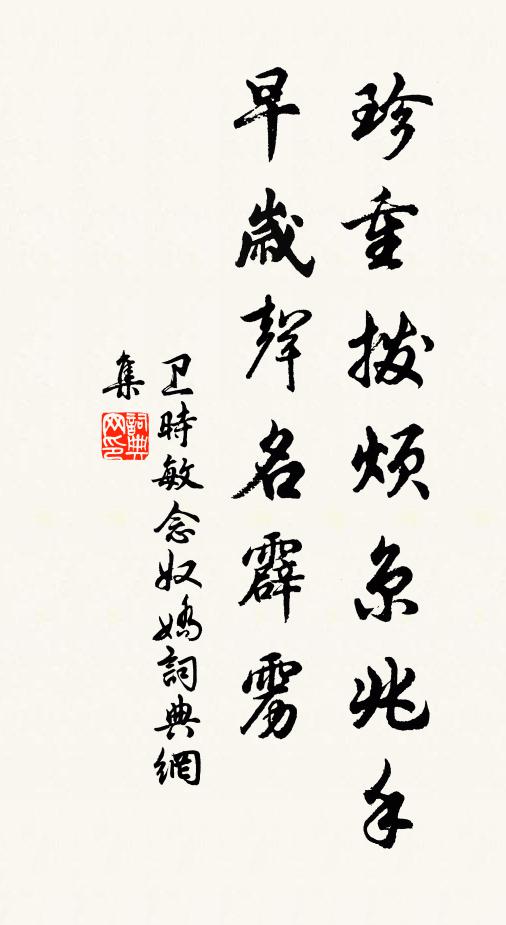 珍重拨煩京兆手
早歲聲名霹雳
卫時敏念奴嬌詞典網
集
詞典
网印